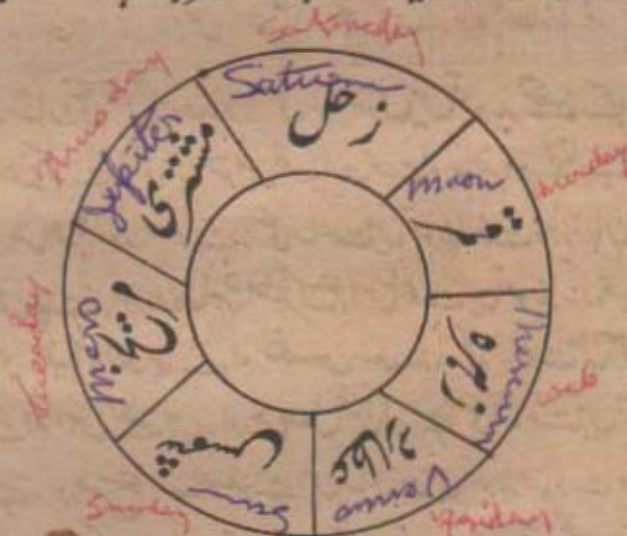 Saturday
Saturn
زحل
Monday
Moon
قمر
Mercury
زہرہ
Wed
Venus
عطارد
Friday
Sun
شمس
Sunday
Mars
مریخ
Tuesday
Jupiter
مشتری
Thursday